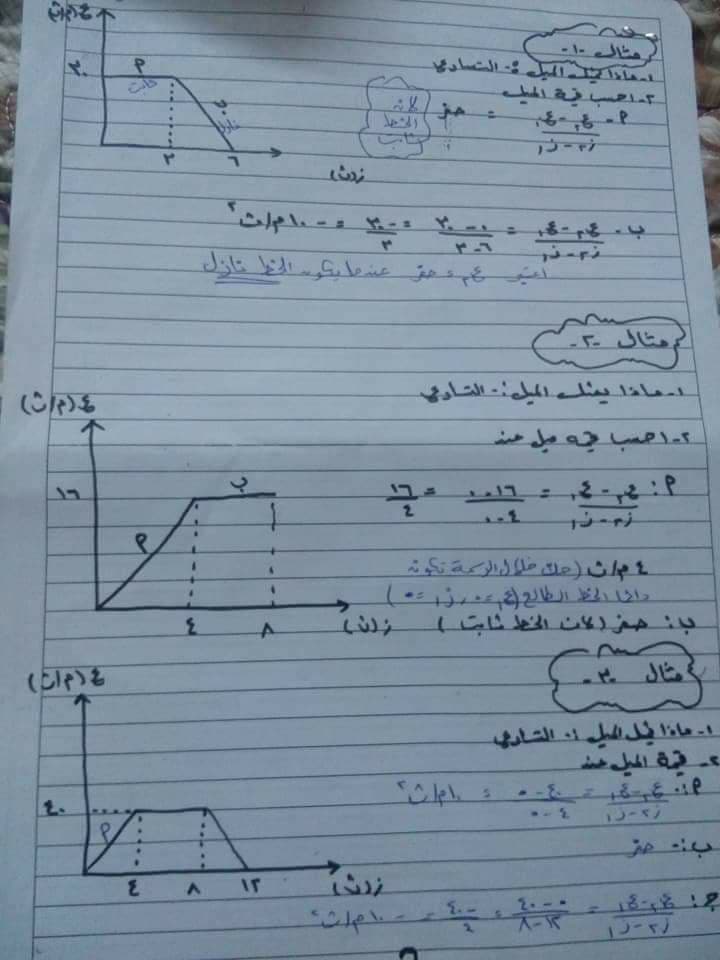 مثال -١-
١- ماذا يمثل الميل :- التسارع
٢- احسب قيمة الميل
P- ع٢ - ع١ / ز٢ - ز١ = صفر
لأنه
الخط
ثابت
ع (م/ث)
٣٠
P
ثابت
ب
نازل
٣
٦
ز(ث)
ب- ع٢ - ع١ / ز٢ - ز١ = ٠ - ٣٠ / ٦ - ٣ = -٣٠ / ٣ = -١٠ م/ث٢
اعتبر ع٢ = صفر عندما يكون الخط نازل
مثال -٢-
١- ماذا يمثل الميل :- التسارع
٢- احسب قيمة ميل عند
P: ع٢ - ع١ / ز٢ - ز١ = ١٦ - ٠ / ٤ - ٠ = ١٦ / ٤
٤ م/ث (حيث خلال الرسمة تكون
دائما الخط الطالع (ع١ = ٠ ، ز١ = ٠)
ب: صفر (كان الخط ثابت)
ع (م/ث)
١٦
P
ب
٤
٨
ز(ث)
مثال -٣-
١- ماذا يمثل الميل :- التسارع
٢- قيمة الميل عند
P: ع٢ - ع١ / ز٢ - ز١ = ٤٠ - ٠ / ٤ - ٠ = ١٠ م/ث٢
ب:- صفر
ج: ع٢ - ع١ / ز٢ - ز١ = ٠ - ٤٠ / ١٢ - ٨ = -٤٠ / ٤ = -١٠ م/ث٢
ع (م/ث)
٤٠
P
٤
٨
١٢
ز(ث)